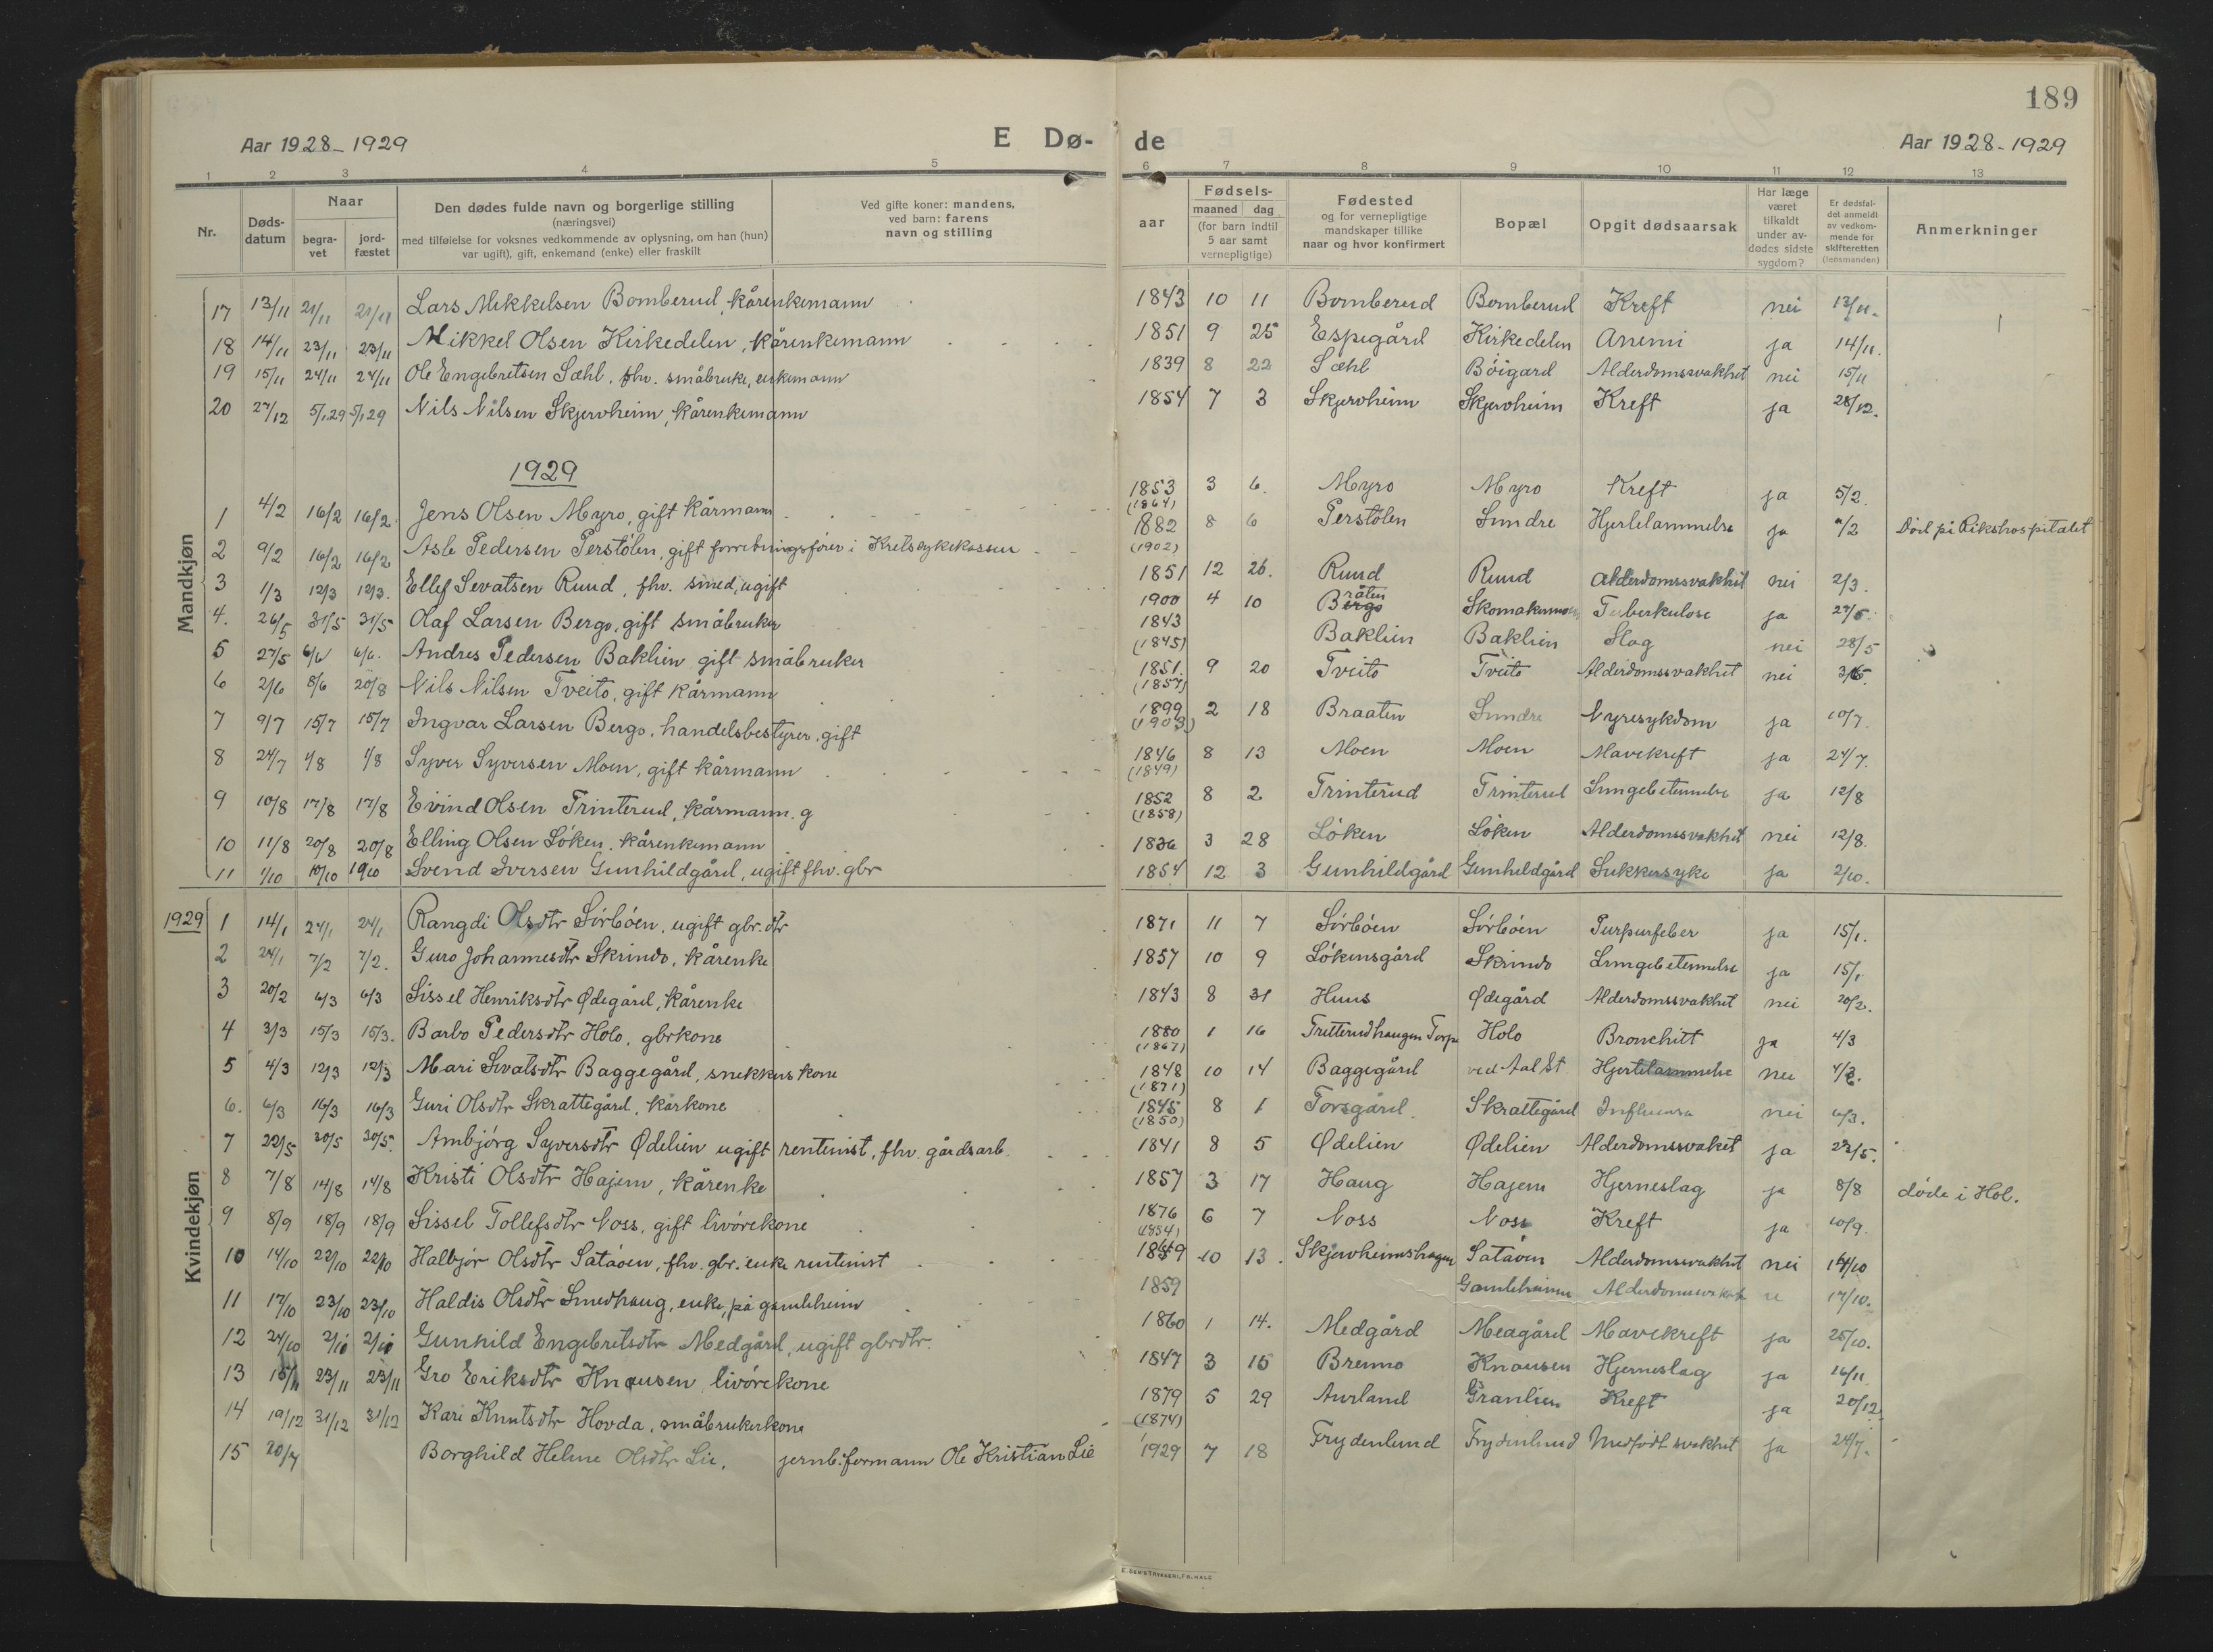 189
Aar 1928-1929 E Dø- de Aar 1928-1929
1 2 3 4 5 6 7 8 9 10 11 12 13
Nr.
Døds-
datum
Naar
begra-
vet
jord-
fæstet
Den dødes fulde navn og borgerlige stilling
(næringsvei)
med tilføielse for voksnes vedkommende av oplysning, om han (hun)
var ugift), gift, enkemand (enke) eller fraskilt
Ved gifte koner: mandens,
ved barn: farens
navn og stilling
aar
Fødsels-
maaned dag
(for barn indtil
5 aar samt
vernepligtige)
Fødested
og for vernepligtige
mandskaper tillike
naar og hvor konfirmert
Bopæl
Opgit dødsaarsak
Har læge
været
tilkaldt
under av-
dødes sidste
sygdom?
Er dødsfal-
det anmeldt
av vedkom-
mende for
skifteretten
(lensmanden)
Anmerkninger
Mandkjøn
17 13/11 21/11 21/11 Lars Mikkelsen Bomberud, kårenkemann 1843 10 11 Bomberud Bomberud Kreft nei 13/11.
18 14/11 23/11 23/11 Mikkel Olsen Kirkedelen, kårenkemann 1851 9 25 Espegård Kirkedelen Anemi ja 14/11.
19 15/11 24/11 24/11 Ole Engebretsen Sæhl, fhv. småbruke, enkemann 1839 8 22 Sæhl Bøigard Alderdomssvakhet nei 15/11
20 27/12 5/1.29 5/1.29 Nils Nilsen Skjervheim, kårenkemann 1854 7 3 Skjervheim Skjervheim Kreft ja 28/12.
1929
1 4/2 16/2 16/2. Jens Olsen Myro, gift kårmann 1853 (1864) 3 6. Myro Myro Kreft ja 5/2.
2 9/2 16/2 16/2 Asle Pedersen Perstølen, gift forretningsfører i Kretssykekassen 1882 (1902) 8 6 Perstølen Sundre Hjertelammelse ja /2 Død på Rikshospitalet
3 1/3 12/3 12/3. Ellef Sevatsen Ruud, fhv. smed, ugift 1851 12 26. Ruud Ruud Alderdomssvakhet nei 2/3.
4. 26/5 31/5 31/5 Olaf Larsen Bergo, gift småbruker 1900 4 10 Bråten Tuberkulose ja 27/5.
5 27/5 6/6 6/6. Andres Pedersen Baklien gift småbruker 1843 (1845) Baklien Baklien Slag nei 28/5
6 2/6 8/6 20/8 Nils Nilsen Tveito, gift kårmann 1851. (1857) 9 20 Tveito Tveito Alderdomssvakhet nei
7 9/7 15/7 15/7 Ingvar Larsen Bergo, handelsbestyrer, gift 1899 (1903) 2 18 Braaten Sundre Nyresykdom ja 10/7.
8 24/7 1/8 1/8 Syver Syversen Moen, gift kårmann 1846 (1849) 8 13 Moen Moen Mavekreft ja 24/7.
9 10/8 17/8 17/8 Eivind Olsen Trinterud, kårmann. g 1852 (1858) 8 2 Trinterud Trinterud Lungebetennelse ja 12/8
10 11/8 20/8 20/8 Elling Olsen Løken, kårenkemann 1836 3 28 Løken Løken Alderdomssvakhet nei 12/8.
11 1/10 10/10 Svend Iversen Gunhildgård, ugift fhv. gbr 1854 12 3 Gunhildgård Gunhildgård Sukkersyke ja 2/10.
Kvindekjøn
1929 1 14/1 24/1 24/1 Rangdi Olsdtr Sørbøen, ugift gbr. dtr 1871 11 7 Sørbøen Sørbøen Purpurfeber ja 15/1.
2 24/1 7/2 7/2. Guro Johannesdtr Skrindo, kårenke 1857 10 9 Løkensgård Skrindo Lungebetennelse ja 15/1
3 20/2 6/3 6/3 Sissel Henriksdtr Ødegård, kårenke 1843 8 31 Huus Ødegård Alderdomssvakhet nei 20/2.
4 3/3 15/3 15/3. Barbo Pedersdtr Holo, gbrkone 1880 (1867) 1 16 Tretterudhaugen Torpe Holo Bronchitt ja 4/3
5 4/3 12/3 12/3 Mari Sevatsdtr Baggegård, snekkers kone 1848 (1871) 10 14 Baggegård ved Aal St. Hjertelammelse nei 4/3.
6. 6/3 16/3 16/3 Guri Olsdtr Skrattegård, kårkone 1845 (1850) 8 1 Torsgård. Skrattegård Influensa nei 6/3.
7 22/5 30/5 30/5. Ambjørg Syversdtr Ødelien ugift rentenist, fhv. gårdsarb. 1841 8 5 Ødelien Ødelien Alderdomssvaket ja 23/5.
8 7/8 14/8 14/8 Kristi Olsdtr Hajem, kårenke 1857 3 17 Haug Hajem Hjerneslag ja 8/8 døde i Hol.
9 8/9 18/9 18/9 Sissel Tollefsdtr Noss, gift livørekone 1876 (1854) 6 7 Noss Noss Kreft ja 10/9.
10 14/10 22/10 22/10 Halbjør Olsdtr Satåoen, fhv. gbr. enke rentenist 10 13. Skjervheimshagen Satåoen Alderdomssvakhet nei 14/10
11 17/10 23/10 23/10 Haldis Olsdtr Smedhaug, enke, på gamleheim 1859 Gamleheimen 17/10.
12 24/10 Gunhild Engebretsdtr Medgård, ugift gbrdtr. 1860 1 14. Medgård Medgård Mavekreft ja 25/10.
13 15/11 23/11 23/11 Gro Eriksdtr Knausen, livørekone 1847 3 15 Brenno Knausen Hjerneslag ja 16/11
14 19/12 31/12 31/12 Kari Knutsdtr Hovda, småbrukerkone 1879 (1874) 5 29 Aurland Granlien Kreft ja 20/12.
15 20/7 Borghild Helene Olsdtr Lie, jernb.formann Ole Kristian Lie 1929 7 18 Frydenlund Frydenlund Medfødt svakhet ja 24/7.